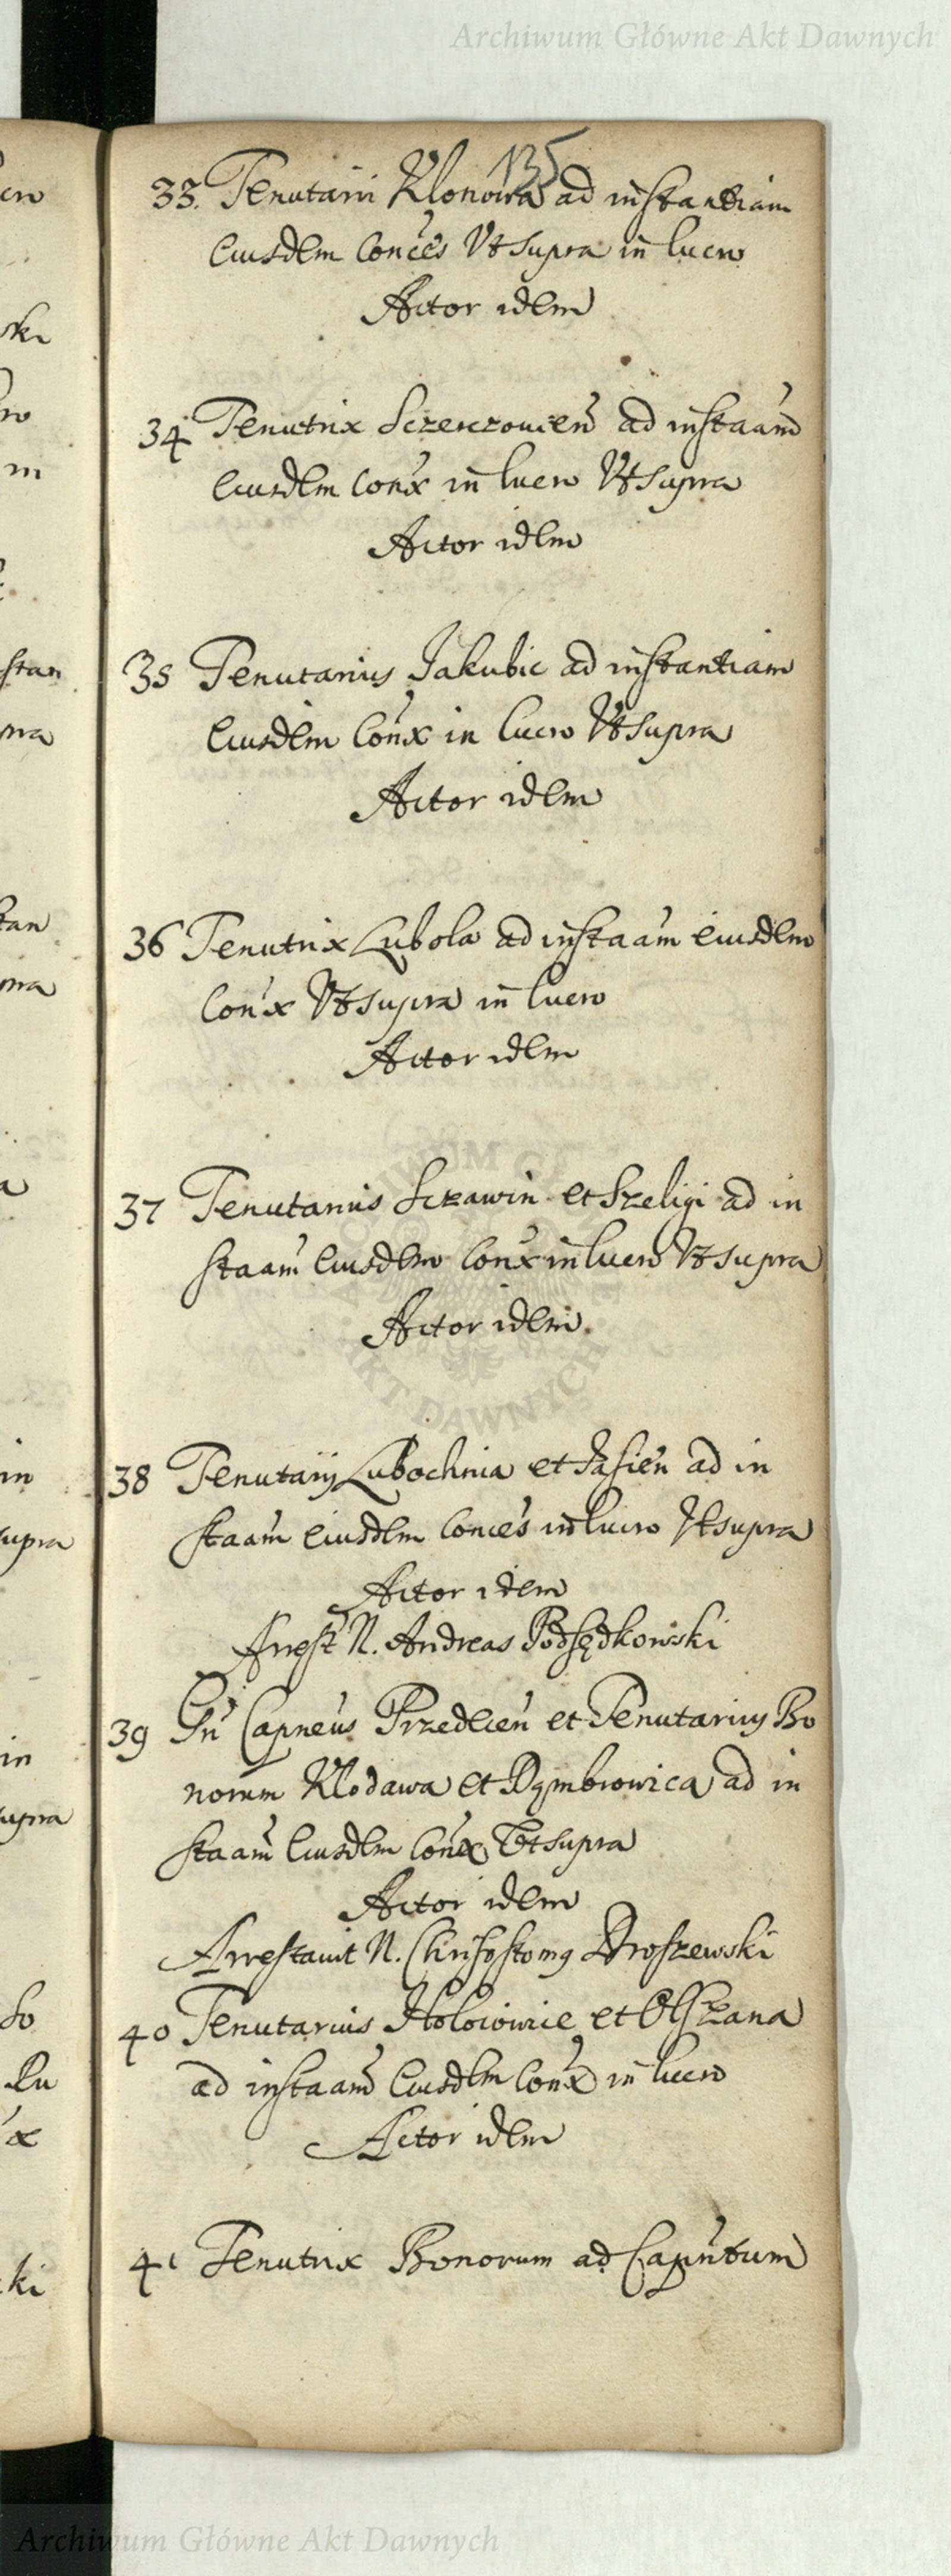 Archiwum Główne Akt Dawnych
135
33. Tenutarii Klonowa ad instantiam
Eiusdem Conces Vt supra in lucro
Actor idem
34 Tenutrix Sczerczouien ad instaam
Eiusdem Conx in lucro Vt supra
Actor idem
35 Tenutarius Jakubic ad instantiam
Eiusdem Conx in lucro Vt supra
Actor idem
36 Tenutrix Lubola ad instaam Eiusdem
Conx Vt supra in lucro
Actor idem
37 Tenutarius Sczawin et Szeligi ad in
staam Eiusdem Conx in lucro Vt supra
Actor idem.
38 Tenutarij Lubochnia et Jasien ad in
staam Eiusdem Conces in lucro Vt supra
Actor idem
Arrest N. Andreas Podsędkowski
39 Gn Capneus Przedecen et Tenutarius Bo
norum Klodawa et Dymbrowica ad in
staam Eiusdem Conx Vt supra
Actor idem
Arrestauit N. Chrisostomg Droszewski
40 Tenutarius Holowice et Olszana
ad instaam Eiusdem Conx in lucro
Actor idem
41 Tenutrix Bonorum ad Capntum
Archiwum Główne Akt Dawnych